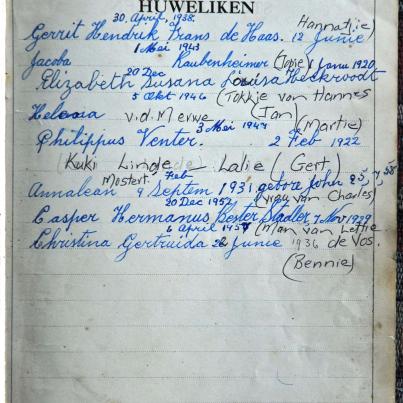 HUWELIKEN
30. April, 1938. Hannatjie)
Gerrit Hendrik Frans de Haas. 12 Junie
1 Mei 1943
Jacoba Raubenheimer (Topie) 1 Janu 1920
20 Dec
Elizabeth Susana Louisa Heckroodt
5 Okt 1946 (Tokkie van Hannes
Helena v.d. Merwe (Jan)
3 Mei 1947 (Martie)
Philippus Venter. 2 Feb 1922
(Kuki Linde Lalie (Gert)
Mostert. Feb
Annalean 9 Septem 1931 gebore John 25 7 58
20 Dec 1952 (vrou van Charles)
Casper Hermanus Bester Stadler 7 Nov 1929
6 April 1457 (Man van Lettie
Christina Gertruida 26 Junie 1936 de Vos.
(Bennie)